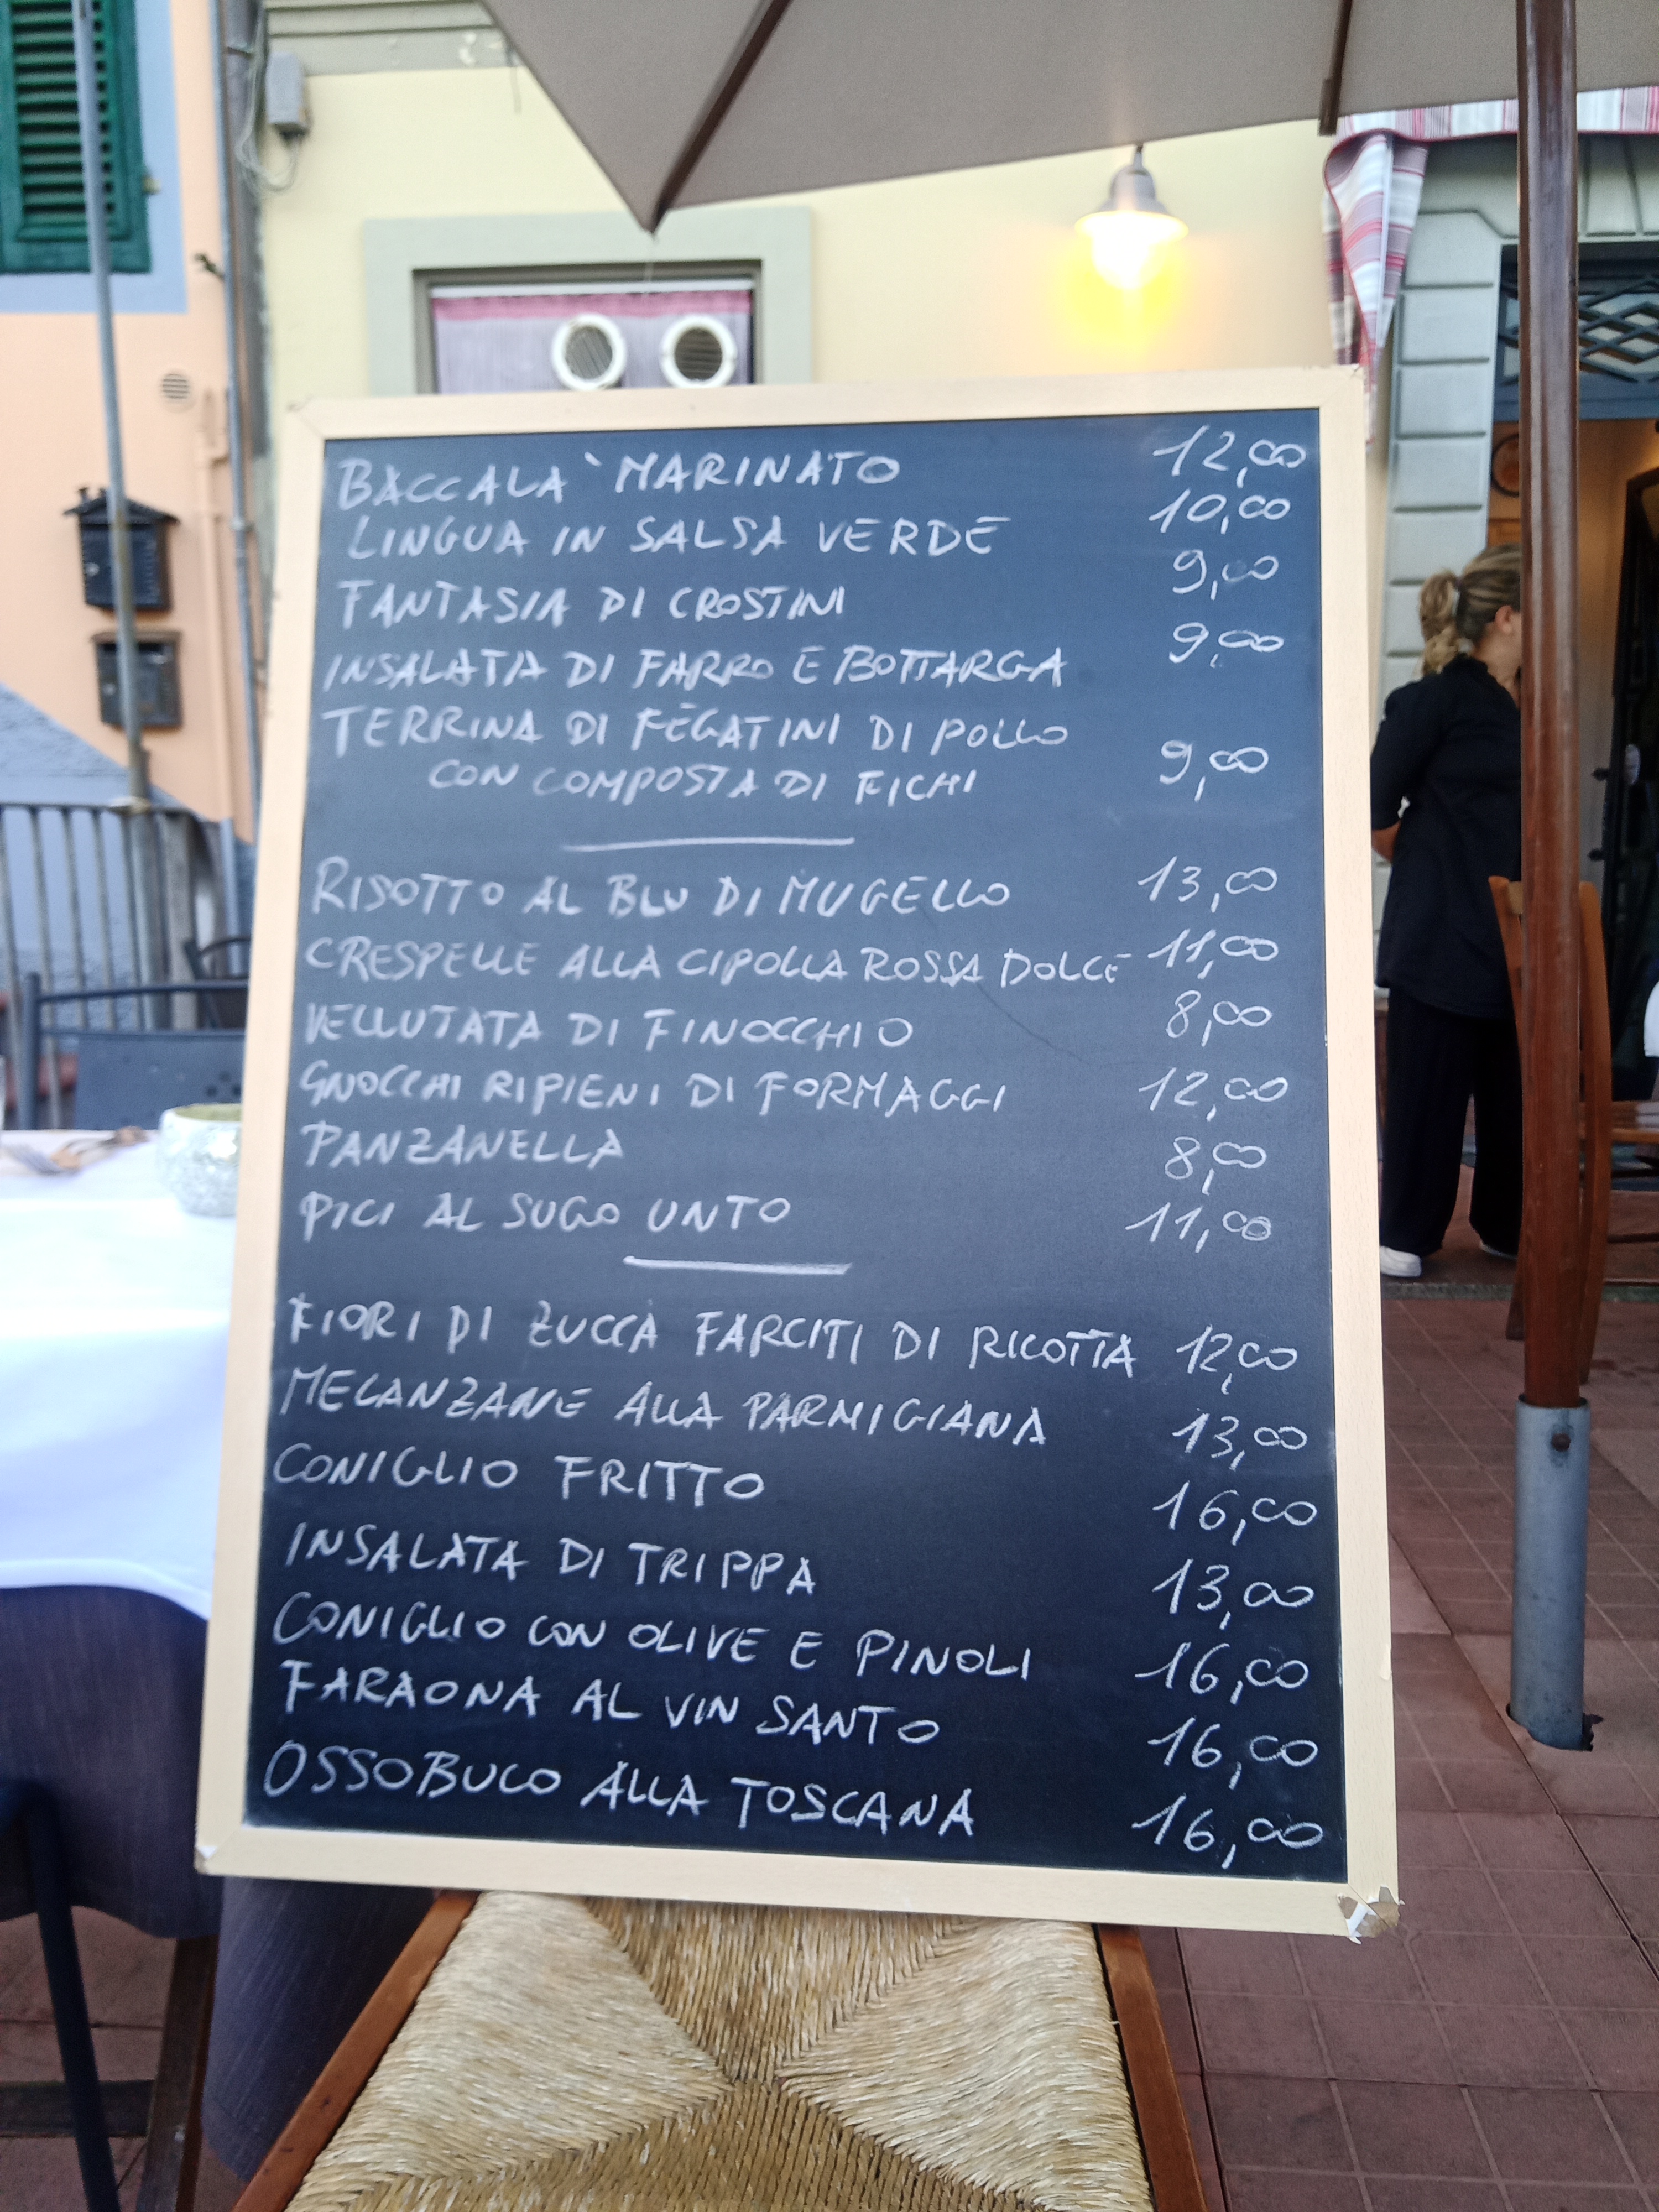 BACCALA` MARINATO 12,00
LINGUA IN SALSA VERDE 10,00
FANTASIA DI CROSTINI 9,00
INSALATA DI FARRO E BOTTARGA 9,00
TERRINA DI FEGATINI DI POLLO
CON COMPOSTA DI FICHI 9,00
RISOTTO AL BLU DI MUGELLO 13,00
CRESPELLE ALLA CIPOLLA ROSSA DOLCE 11,00
VELLUTATA DI FINOCCHIO 8,00
GNOCCHI RIPIENI DI FORMAGGI 12,00
PANZANELLA 8,00
PICI AL SUGO UNTO 11,00
FIORI DI ZUCCA FARCITI DI RICOTTA 12,00
MELANZANE ALLA PARMIGIANA 13,00
CONIGLIO FRITTO 16,00
INSALATA DI TRIPPA 13,00
CONIGLIO CON OLIVE E PINOLI 16,00
FARAONA AL VIN SANTO 16,00
OSSOBUCO ALLA TOSCANA 16,00